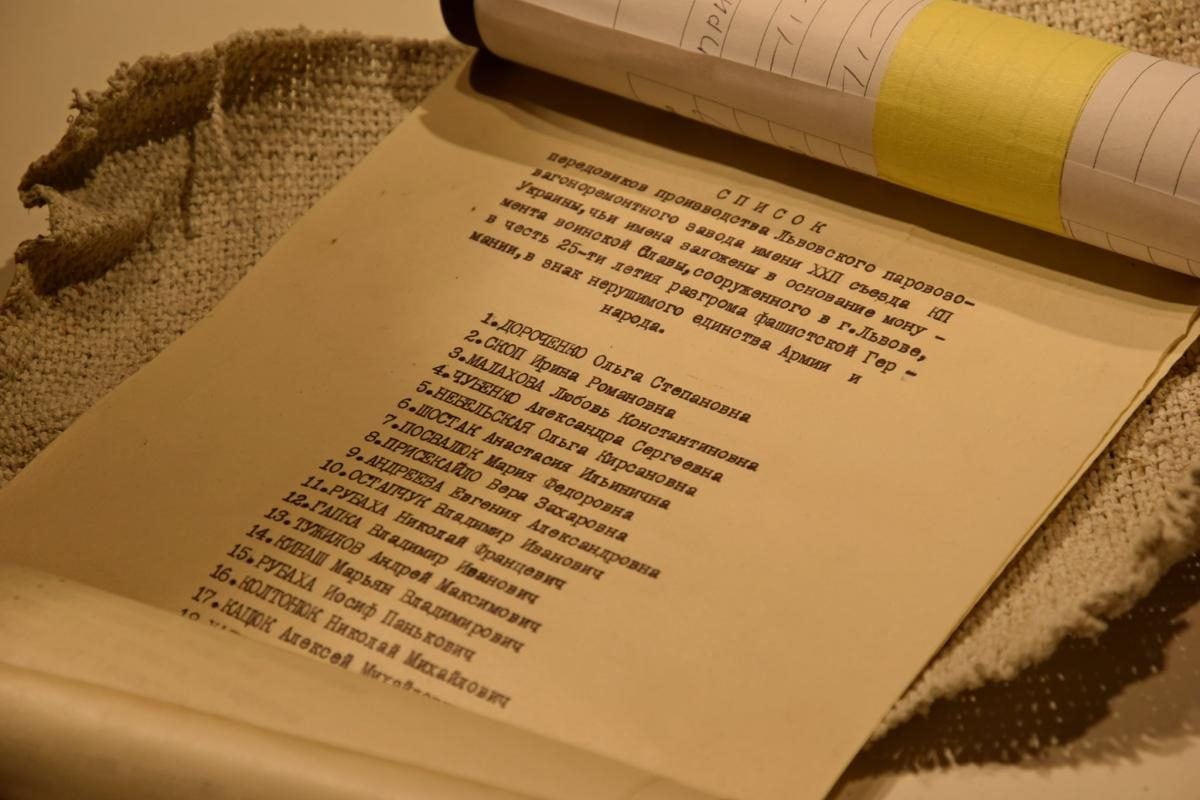 С П И С О К
передовиков производства Львовского паровозо-
вагоноремонтного завода имени XXII съезда КП
Украины, чьи имена заложены в основание мону -
мента воинской Славы, сооруженного в г.Львове,
в честь 25-ти летия разгрома фашистской Гер -
мании, в знак нерушимого единства Армии и
народа.
1.ДОРОЧЕНКО Ольга Степановна
2.СКОП Ирина Романовна
3.МАЛАХОВА Любовь Константиновна
4.ЧУБЕНКО Александра Сергеевна
5.НЕБЕЛЬСКАЯ Ольга Кирсановна
6.ШОСТАК Анастасия Ильинична
7.ПОСВАЛЮК Мария Федоровна
8.ПРИСЕКАЙЛО Вера Захаровна
9.АНДРЕЕВА Евгения Александровна
10.ОСТАПЧУК Владимир Иванович
11.РУБАХА Николай Францевич
12.ГАПКА Владимир Иванович
13.ТУЖИЛОВ Андрей Максимович
14.КИНАШ Марьян Владимирович
15.РУБАХА Иосиф Панькович
16.КОЛТОНЮК Николай Михайлович
17.КАЦЮК Алексей